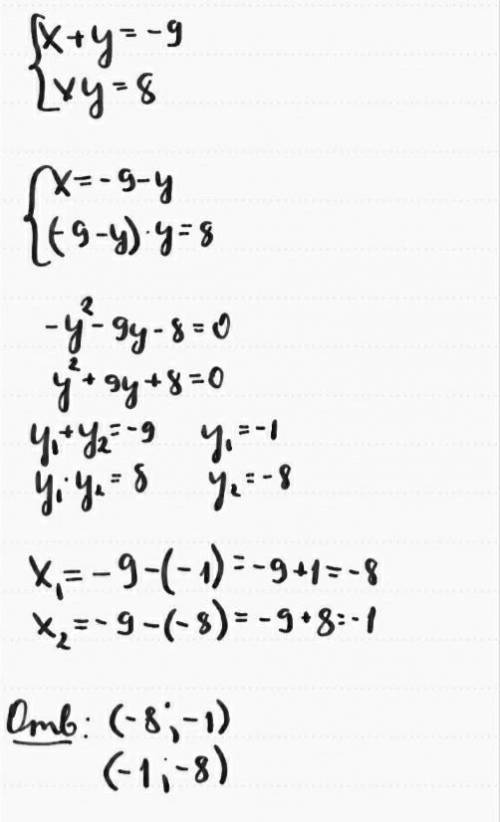 x + y = -9
xy = 8
x = -9-y
(-9-y)·y = 8
-y² - 9y - 8 = 0
y² + 9y + 8 = 0
y₁ + y₂ = -9 y₁ = -1
y₁ · y₂ = 8 y₂ = -8
x₁ = -9-(-1) = -9+1 = -8
x₂ = -9-(-8) = -9+8 = -1
Отв: (-8; -1)
(-1; -8)